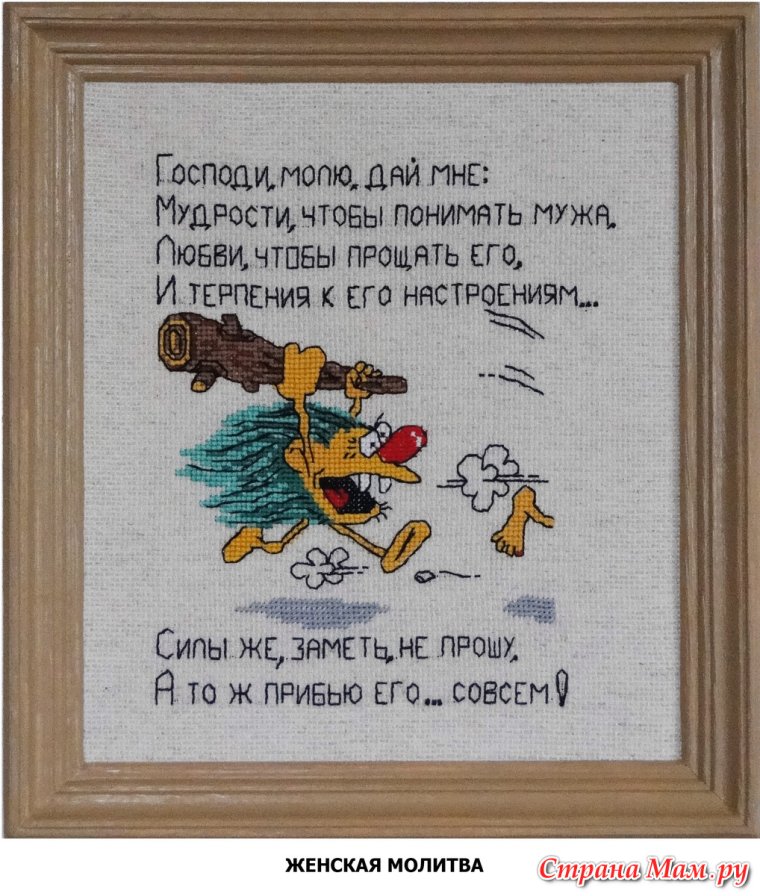 Господи, молю, дай мне:
Мудрости, чтобы понимать мужа,
Любви, чтобы прощать его,
И терпения к его настроениям...
Силы же, заметь, не прошу,
А то ж прибью его... совсем!
ЖЕНСКАЯ МОЛИТВА
Страна Мам.ру